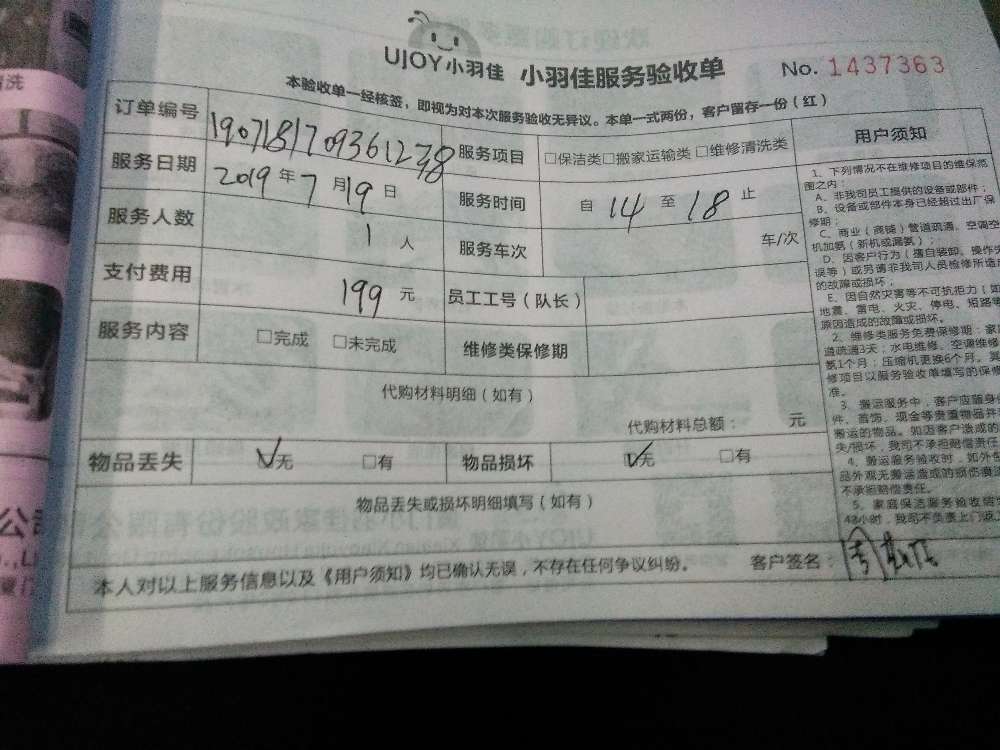 清洗
UJOY小羽佳 小羽佳服务验收单 No. 1437363
本验收单一经核签，即视为对本次服务验收无异议。本单一式两份，客户留存一份（红）
订单编号 190718170936123
服务项目 □保洁类□搬家运输类□维修清洗类
用户须知
服务日期 2019年7月19日
服务时间 自 14 至 18 止
服务人数 1人
服务车次 车/次
支付费用 199元
员工工号（队长）
服务内容 □完成 □未完成
维修类保修期
代购材料明细（如有）
代购材料总额： 元
物品丢失 ☑无 □有 物品损坏 ☑无 □有
物品丢失或损坏明细填写（如有）
本人对以上服务信息以及《用户须知》均已确认无误，不存在任何争议纠纷。 客户签名：
1、下列情况不在维修项目的维保范
围之内：
A、非我司员工提供的设备或部件；
B、设备或部件本身已经超过出厂保
修期；
C、商业（商铺）管道疏通、空调空
机加氨（新机或漏氨）；
D、因客户行为（擅自装卸、操作失
误等）或另请非我司人员检修所造成
的故障或损坏；
E、因自然灾害等不可抗拒力（如
地震、雷电、火灾、停电、短路等
原因造成的故障或损坏。
2、维修类服务免费保修期：家
道疏通3天；水电维修、空调维修
氨1个月；压缩机更换6个月。其
修项目以服务验收单填写的保修
准。
3、搬运服务中，客户应随身
件、首饰、现金等贵重物品并
搬运的物品。如因客户造成的
失/损坏，我司不承担赔偿责任
4、搬运服务验收时，如外包
品外观无搬运造成的损伤痕迹
不承担赔偿责任。
5、家庭保洁服务验收结
48小时，我司不负责上门返工
公司